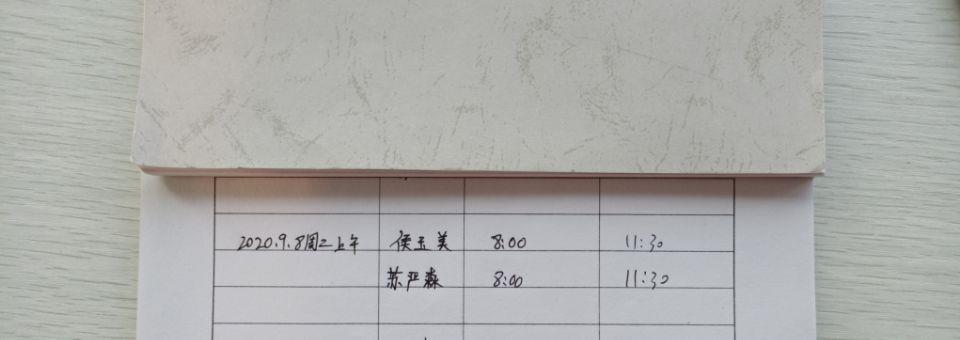 2020.9.8周二上午 侯玉美 8:00 11:30
苏严森 8:00 11:30